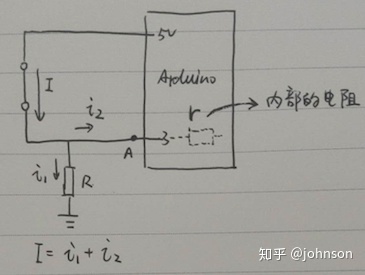 5V
Arduino
I
i₂
r
内部的电阻
3
A
i₁
R
I = i₁ + i₂
知乎 @johnson